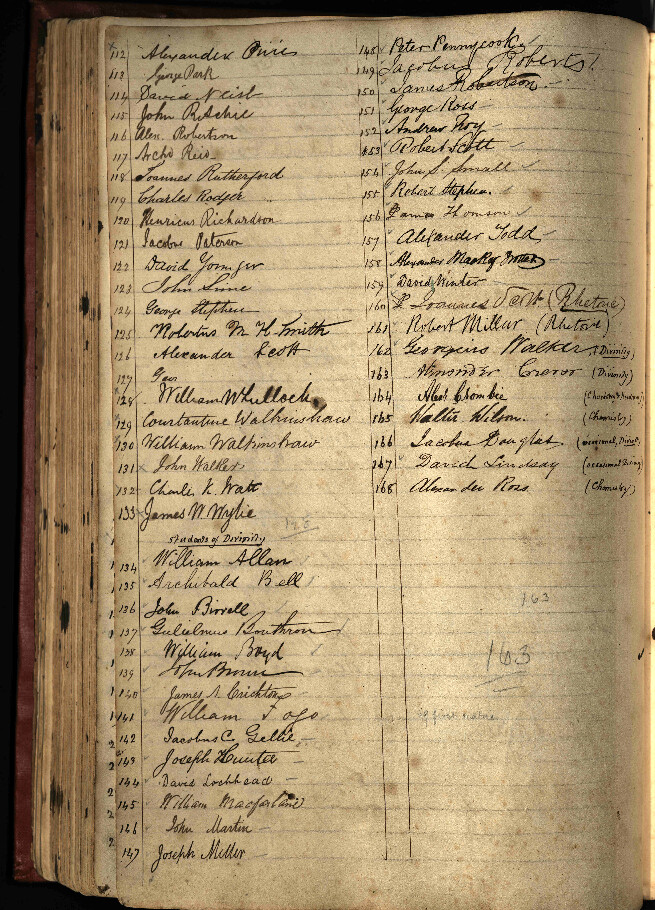 112 Alexander Pirie
113 George Park
114 David Neish
115 John Ritchie
116 Alex. Robertson
117 Archd Reid
118 Joannes Rutherford
119 Charles Rodger
120 Henricus Richardson
121 Jacobus Paterson
122 David Younger
123 John Sime
124 George Stephen
125 Robertus M. H. Smith
126 Alexander Scott
127 Geo
128 William Whullock
129 Constantine Walkinshaw
130 William Walkinshaw
131 John Walker
132 Charles K. Watt
133 James W Wylie
128
Students of Divinity
134 William Allan
135 Archibald Bell
136 John Birrell
137 Gulielmus Bouthron
138 William Boyd
139 John Brown
140 James A Crichton
141 William Fogo
142 Jacobus C. Gellie
143 Joseph Hunter
144 David Lochhead
145 William Macfarlane
146 John Martin
147 Joseph Miller
148 Peter Pennycook
149 Jacobus Roberts
150 James Robertson
151 George Ross
152 Andrew Roy
153 Robert Scott
154 John S. Small
155 Robert Stephen
156 James Thomson
157 Alexander Todd
158 Alexander Mackey
159 David Winter
160 Joannes Scott (Rhetoric)
161 Robert Millar (Rhetoric)
162 Georgius Walker (Divinity)
163 (Divinity)
164 Alexr Crombie
165 Walter Wilson. (Chemistry)
166 Jacobus Douglas (occasional, Divin.)
167 David Lindsay (occasional Divinity)
168 Alexander Ross (Chemistry)
163
163